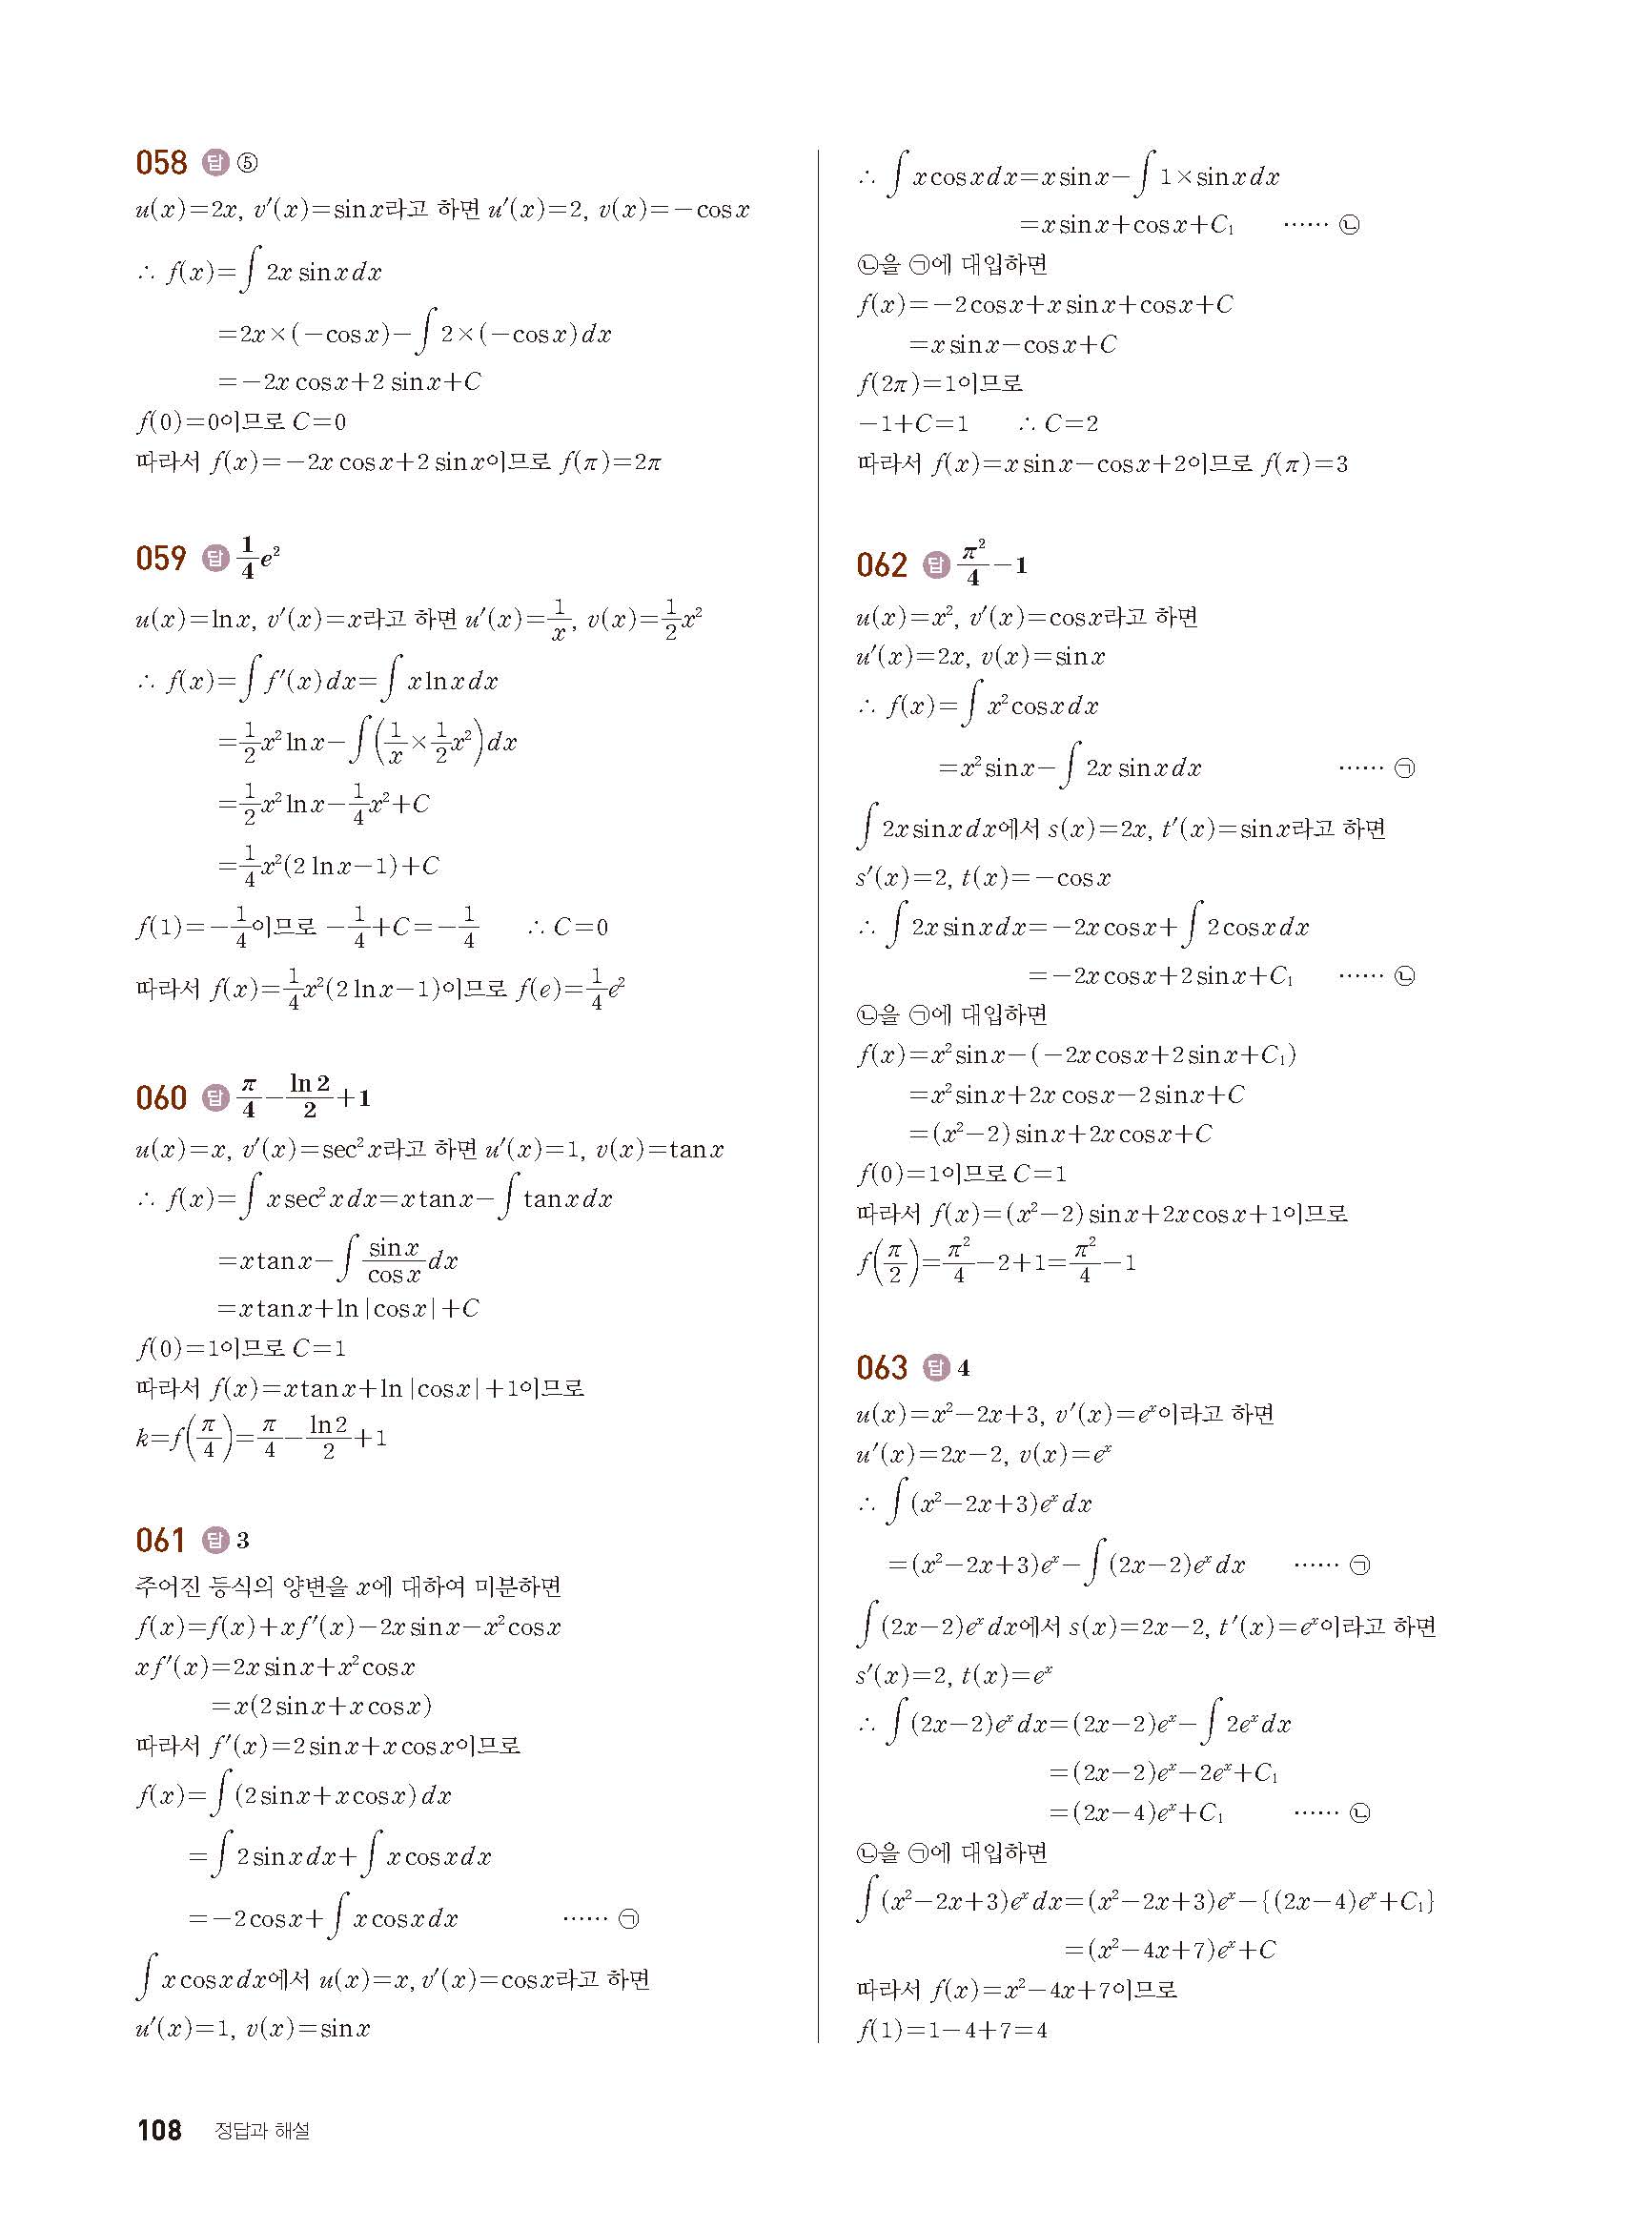 058 답 ⑤
u(x)=2x, v′(x)=sin x라고 하면 u′(x)=2, v(x)=−cos x
∴ f(x)=∫ 2x sin x dx
=2x×(−cos x)−∫ 2×(−cos x) dx
=−2x cos x+2 sin x+C
f(0)=0이므로 C=0
따라서 f(x)=−2x cos x+2 sin x이므로 f(π)=2π
059 답 1/4 e²
u(x)=ln x, v′(x)=x라고 하면 u′(x)=1/x, v(x)=1/2 x²
∴ f(x)=∫ f′(x) dx=∫ x ln x dx
=1/2 x² ln x−∫ (1/x×1/2 x²) dx
=1/2 x² ln x−1/4 x²+C
=1/4 x²(2 ln x−1)+C
f(1)=−1/4이므로 −1/4+C=−1/4 ∴ C=0
따라서 f(x)=1/4 x²(2 ln x−1)이므로 f(e)=1/4 e²
060 답 π/4−ln 2/2+1
u(x)=x, v′(x)=sec² x라고 하면 u′(x)=1, v(x)=tan x
∴ f(x)=∫ x sec² x dx=x tan x−∫ tan x dx
=x tan x−∫ sin x/cos x dx
=x tan x+ln |cos x|+C
f(0)=1이므로 C=1
따라서 f(x)=x tan x+ln |cos x|+1이므로
k=f(π/4)=π/4−ln 2/2+1
061 답 3
주어진 등식의 양변을 x에 대하여 미분하면
f(x)=f(x)+x f′(x)−2x sin x−x² cos x
x f′(x)=2x sin x+x² cos x
=x(2 sin x+x cos x)
따라서 f′(x)=2 sin x+x cos x이므로
f(x)=∫ (2 sin x+x cos x) dx
=∫ 2 sin x dx+∫ x cos x dx
=−2 cos x+∫ x cos x dx …… ㉠
∫ x cos x dx에서 u(x)=x, v′(x)=cos x라고 하면
u′(x)=1, v(x)=sin x
∴ ∫ x cos x dx=x sin x−∫ 1×sin x dx
=x sin x+cos x+C₁ …… ㉡
㉡을 ㉠에 대입하면
f(x)=−2 cos x+x sin x+cos x+C
=x sin x−cos x+C
f(2π)=1이므로
−1+C=1 ∴ C=2
따라서 f(x)=x sin x−cos x+2이므로 f(π)=3
062 답 π²/4−1
u(x)=x², v′(x)=cos x라고 하면
u′(x)=2x, v(x)=sin x
∴ f(x)=∫ x² cos x dx
=x² sin x−∫ 2x sin x dx …… ㉠
∫ 2x sin x dx에서 s(x)=2x, t′(x)=sin x라고 하면
s′(x)=2, t(x)=−cos x
∴ ∫ 2x sin x dx=−2x cos x+∫ 2 cos x dx
=−2x cos x+2 sin x+C₁ …… ㉡
㉡을 ㉠에 대입하면
f(x)=x² sin x−(−2x cos x+2 sin x+C₁)
=x² sin x+2x cos x−2 sin x+C
=(x²−2) sin x+2x cos x+C
f(0)=1이므로 C=1
따라서 f(x)=(x²−2) sin x+2x cos x+1이므로
f(π/2)=π²/4−2+1=π²/4−1
063 답 4
u(x)=x²−2x+3, v′(x)=eˣ이라고 하면
u′(x)=2x−2, v(x)=eˣ
∴ ∫ (x²−2x+3)eˣ dx
=(x²−2x+3)eˣ−∫ (2x−2)eˣ dx …… ㉠
∫ (2x−2)eˣ dx에서 s(x)=2x−2, t′(x)=eˣ이라고 하면
s′(x)=2, t(x)=eˣ
∴ ∫ (2x−2)eˣ dx=(2x−2)eˣ−∫ 2eˣ dx
=(2x−2)eˣ−2eˣ+C₁
=(2x−4)eˣ+C₁ …… ㉡
㉡을 ㉠에 대입하면
∫ (x²−2x+3)eˣ dx=(x²−2x+3)eˣ−{(2x−4)eˣ+C₁}
=(x²−4x+7)eˣ+C
따라서 f(x)=x²−4x+7이므로
f(1)=1−4+7=4
108 정답과 해설